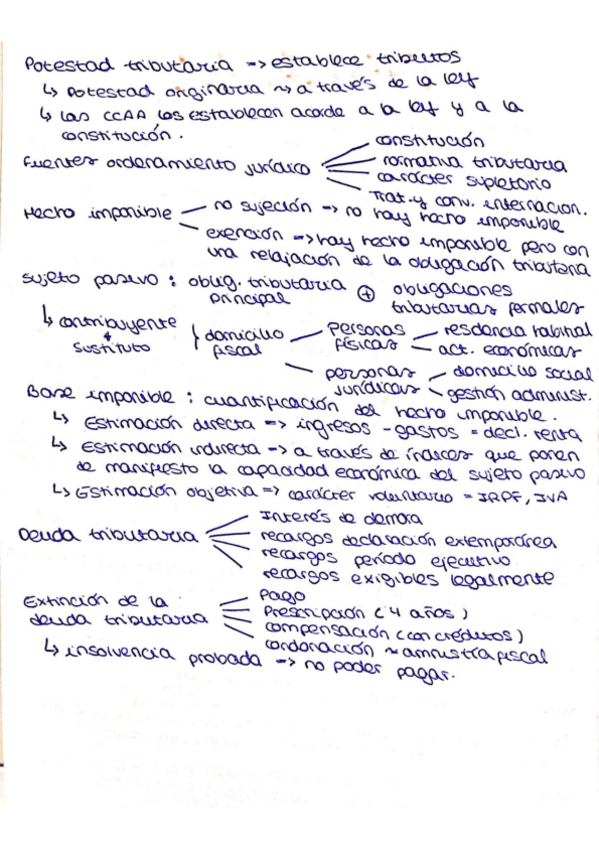 Potestad tributaria => establece tributos
↳ Potestad originaria ~> a través de la ley
↳ Las CCAA los establecen acorde a la ley y a la
constitución.
constitución
Fuentes ordenamiento jurídico
normativa tributaria
carácter supletorio
Trat. y conv. internacion.
Hecho imponible
no sujeción => no hay hecho imponible
exención => hay hecho imponible pero con
una relajación de la obligación tributaria
Sujeto pasivo : oblig. tributaria + obligaciones
principal tributarias formales
↳ contribuyente
+
sustituto
domicilio
fiscal
Personas
físicas
residencia habitual
act. económicas
personas
jurídicas
domicilio social
gestión administ.
Base imponible : cuantificación del hecho imponible.
↳ Estimación directa => ingresos - gastos = decl. renta
↳ Estimación indirecta -> a través de índices que ponen
de manifiesto la capacidad económica del sujeto pasivo
↳ Estimación objetiva => carácter voluntario = IRPF, IVA
Deuda tributaria
Interés de demora
recargos declaración extemporárea
recargos período ejecutivo
recargos exigibles legalmente
Extinción de la
deuda tributaria
Pago
Prescripción (4 años)
compensación (con créditos)
condonación ~ amnistía fiscal
↳ insolvencia probada => no poder pagar.